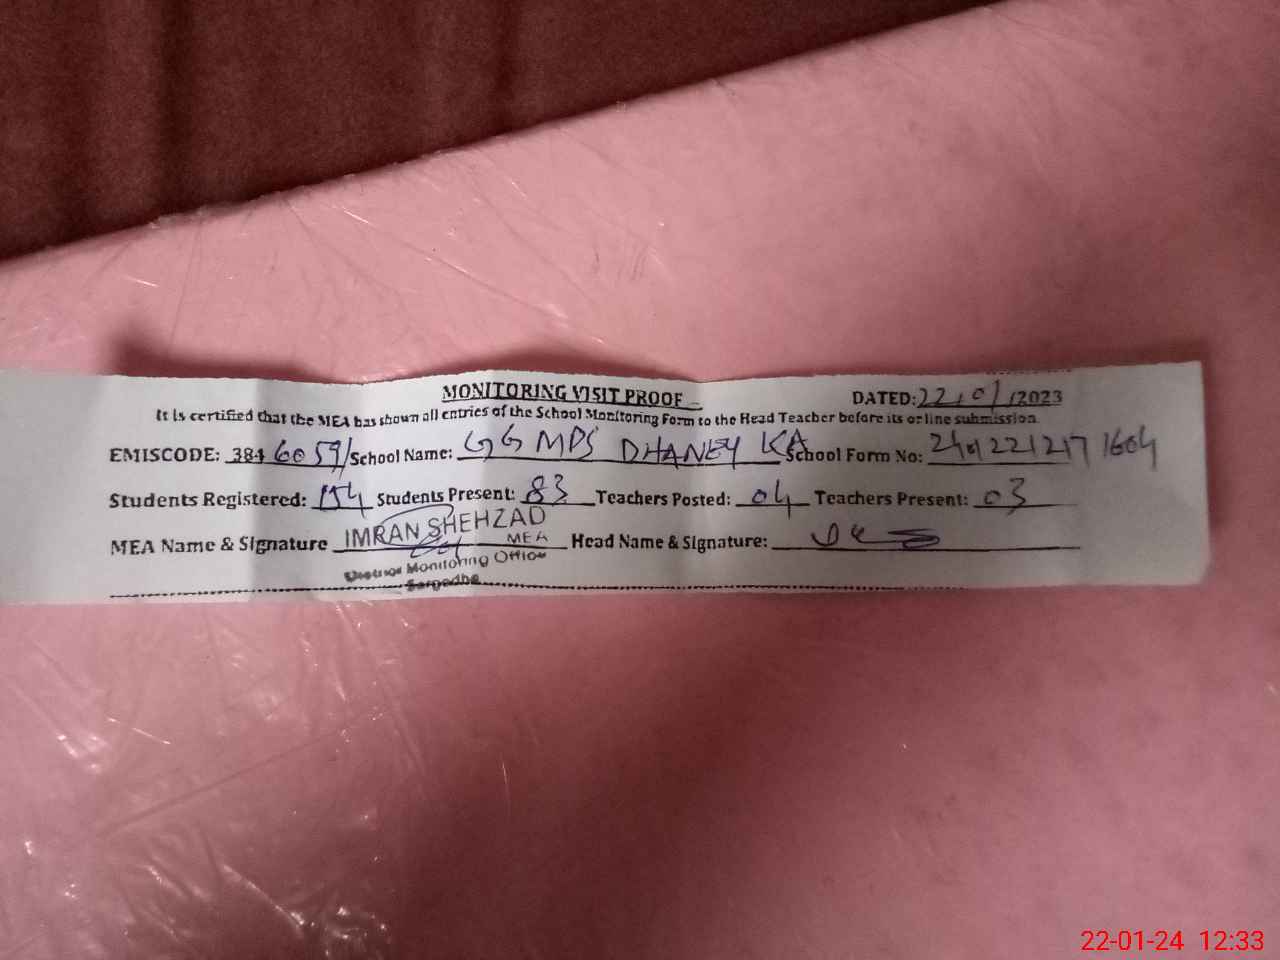 MONITORING VISIT PROOF
DATED: 22/01/2023
It is certified that the MEA has shown all entries of the School Monitoring Form to the Head Teacher before its online submission.
EMISCODE: 384 60591 School Name: GGMPS DHANEY KA School Form No:
Students Registered: 154 Students Present: 83 Teachers Posted: 04 Teachers Present: 03
MEA Name & Signature IMRAN SHEHZAD Head Name & Signature:
MEA
District Monitoring Office
Sargodha
22-01-24 12:33